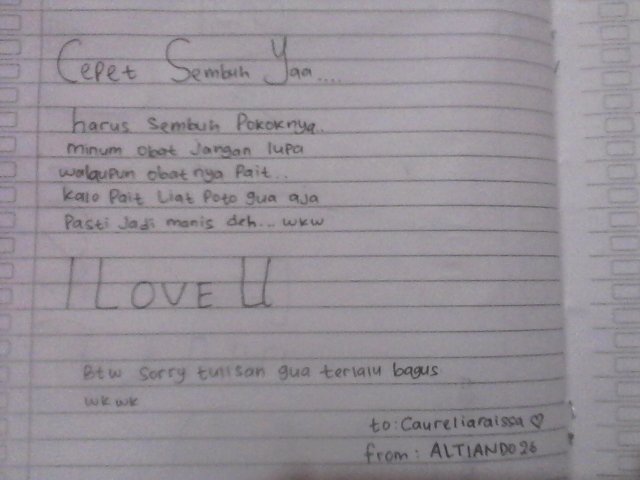 Cepet Sembuh Yaa....
harus sembuh Pokoknya.
minum obat Jangan lupa
walaupun obatnya Pait..
kalo Pait Liat Poto gua aja
Pasti Jadi manis deh... wkw
I LOVE U
Btw sorry tulisan gua terlalu bagus
wkwk
to: Caureliaraissa ♡
from: ALTIANDO26